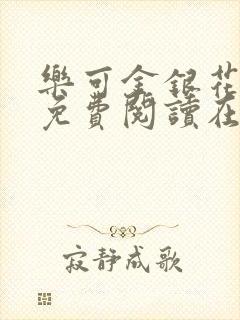 樂可金銀花
免費閱讀在
寂静成歌